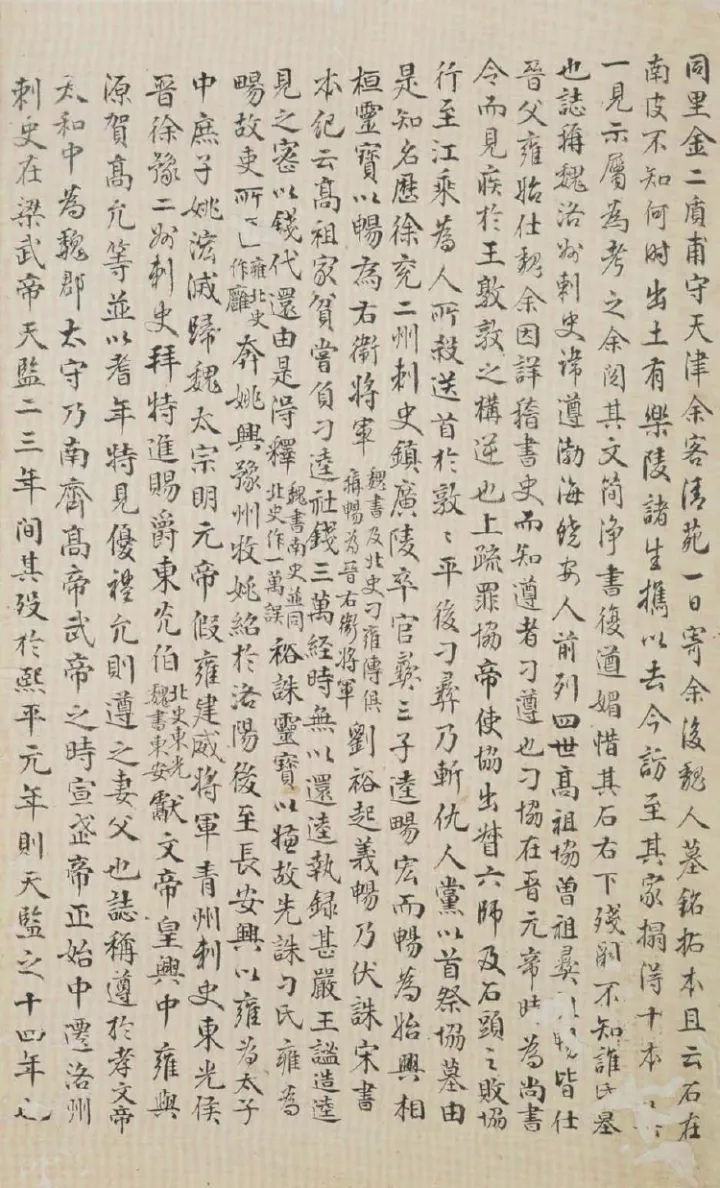 同里金二質甫守天津余客清苑一日寄余後魏人墓銘拓本且云石在
南皮不知何时出土有樂陵諸生攜以去今訪至其家搨得十本
一見示屬為考之余閱其文简净書復遒媚惜其石右下残闕不知誰氏墓
也誌稱魏洛州刺史諱遵渤海饒安人前列四世高祖協曾祖彝皆仕
晉父雍始仕魏余因詳稽書史而知遵者刁遵也刁協在晉元帝时為尚書
令而見疾於王敦敦之構逆也上疏罪協帝使協出督六師及石頭之敗協
行至江乘為人所殺送首於敦〻平後刁彝乃斬仇人黨以首祭協墓由
是知名歷徐兖二州刺史鎮廣陵卒官彝三子逵暢宏而暢為始興相
桓靈寶以暢為右衞將軍魏書及北史刁雍傳俱稱暢為晉右衞將軍劉裕起義暢乃伏誅宋書
本紀云高祖家貧嘗負刁逵社錢三萬经時無以還逵執録甚嚴王謐造逵
見之密以钱代還由是得釋魏書南史並同北史作一萬誤裕誅靈寶以嫌故先誅刁氏雍為
暢故吏所匿雍北史作雝奔姚興豫州牧姚紹於洛陽後至長安興以雍為太子
中庶子姚泓滅歸魏太宗明元帝假雍建威將軍青州刺史東光侯
晉徐豫二州刺史拜特進賜爵東光伯北史東光魏書東安獻文帝皇興中雍與
源賀高允等並以耆年特見優禮允則遵之妻父也誌稱遵於孝文帝
太和中為魏郡太守乃南齊高帝武帝之時宣武帝正始中遷洛州
刺史在梁武帝天監二三年间其殁於熙平元年則天監之十四年也